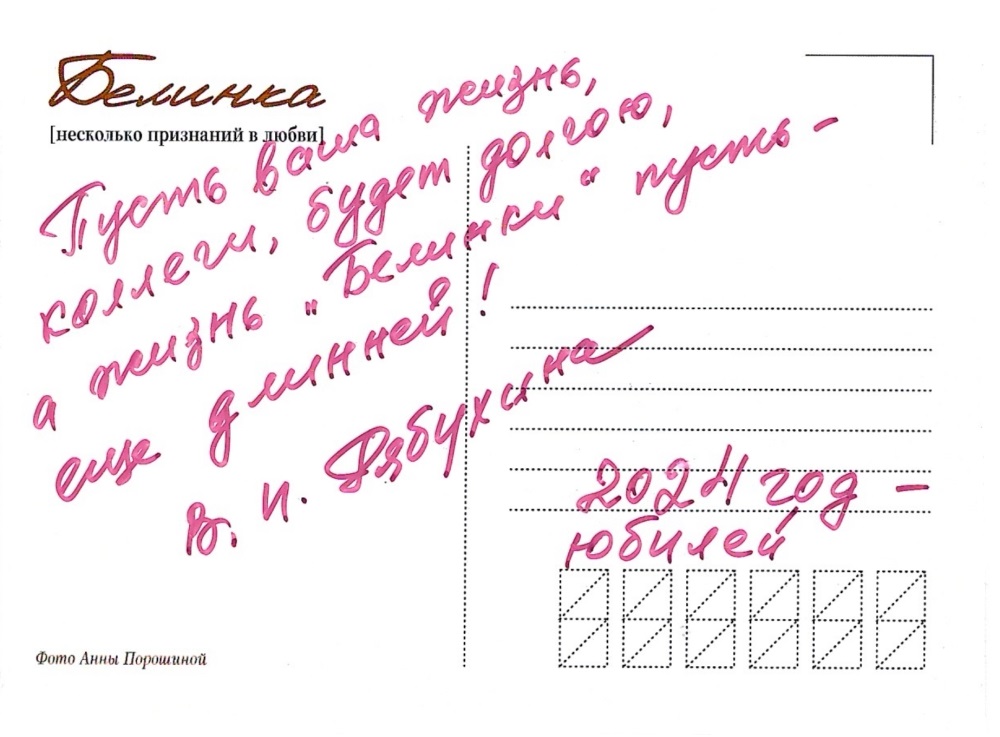 Белинка
[несколько признаний в любви]
Пусть ваша жизнь,
коллеги, будет долгою,
а жизнь "Белинки" пусть -
еще длинней!
В. И.
2024 год -
юбилей
Фото Анны Порошиной